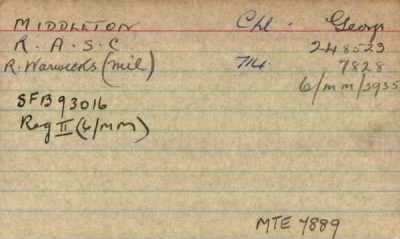 MIDDLETON Cpl. George
R.A.S.C 248523
R. Warwicks (Mil) 714. 7828
6/MM/3935
SFB93016
Reg II (6/MM)
MTE 4889